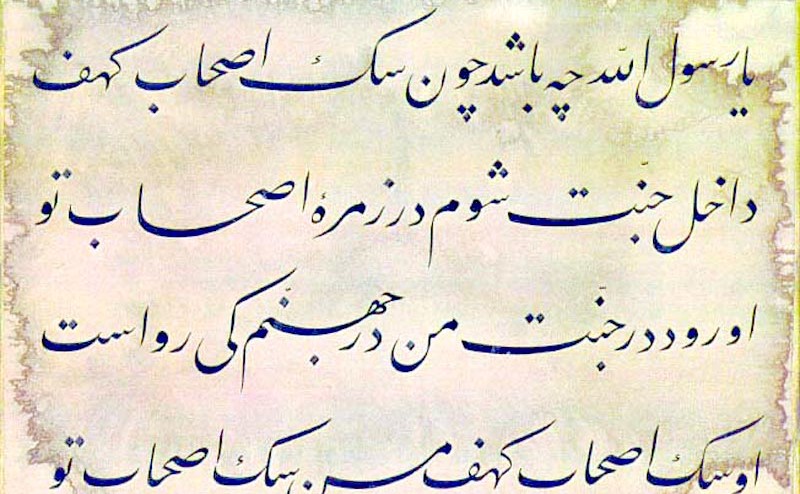 یا رسول الله چه باشد چون سک اصحاب کهف
داخل جنّت شوم در زمرهٔ اصحاب تو
او رود در جنّت من در جهنّم کی رواست
او سک اصحاب کهف من سک اصحاب تو